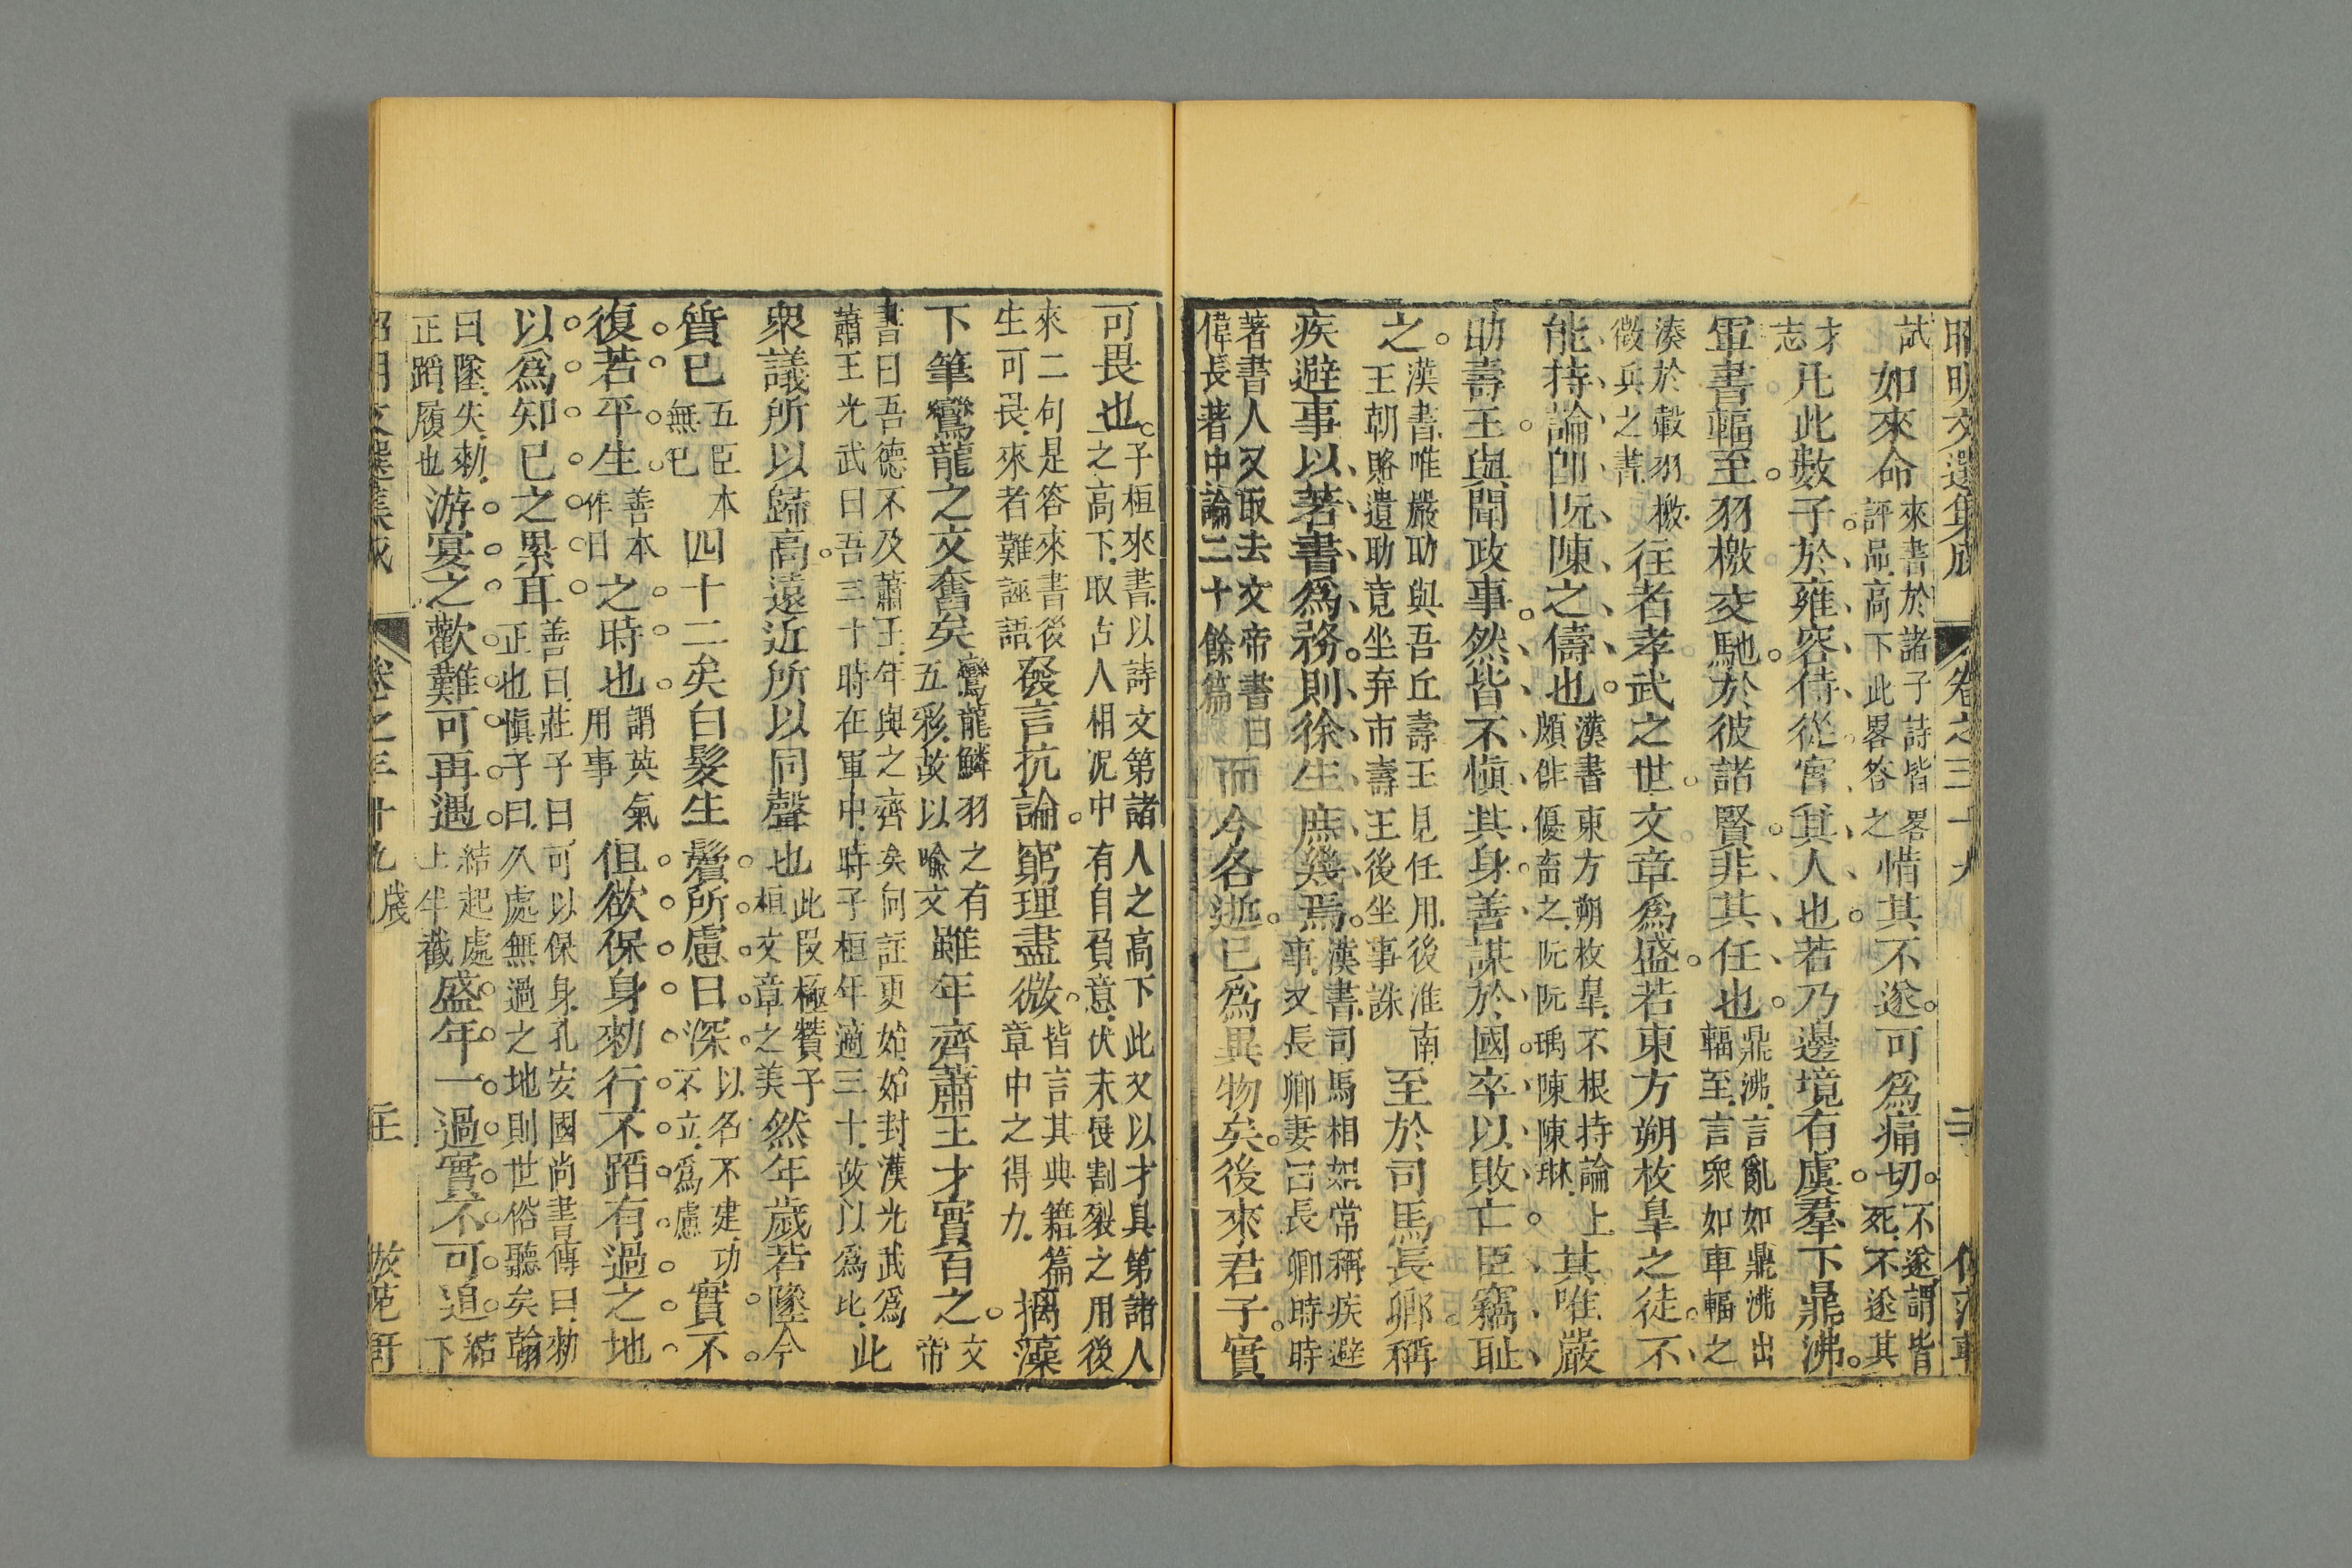 試如來命來書於諸子詩皆畧評品高下此畧答之惜其不遂可爲痛切不遂謂皆死不遂其
才志凡此數子於雍容侍從實其人也若乃邊境有虞羣下鼎沸
軍書輻至羽檄交馳於彼諸賢非其任也鼎沸言亂如鼎沸出輻至言衆如車輻之
湊於轂羽檄徵兵之書往者孝武之世文章爲盛若東方朔枚臯之徒不
能持論卽阮陳之儔也漢書東方朔枚臯不根持論上頗俳優畜之阮阮瑀陳陳琳其唯嚴
助壽王與聞政事然皆不愼其身善謀於國卒以敗亡臣竊耻
之漢書唯嚴助與吾丘壽王見任用後淮南王朝賂遺助竟坐弃市壽王後坐事誅至於司馬長卿稱
疾避事以著書爲務則徐生庶幾焉漢書司馬相如常稱疾避事又長卿妻曰長卿時時
著書人又取去文帝書曰偉長著中論二十餘篇而今各逝已爲異物矣後來君子實
可畏也子桓來書以詩文第諸人之高下此又以才具第諸人之高下取古人相况中有自負意伏末段割裂之用後
來二句是答來書後生可畏來者難誣語發言抗論窮理盡微皆言其典籍篇章中之得力摛藻
下筆鸞龍之文奮矣鸞龍鱗羽之有五彩故以喻文雖年齊蕭王才實百之文帝
書曰吾德不及蕭王年與之齊矣向註更始始封漢光武爲蕭王光武曰吾三十時在軍中時子桓年適三十故以爲比此
衆議所以歸高遠近所以同聲也此段極贊子桓文章之美然年歲若墜今
質已五臣本無已四十二矣白髮生鬢所慮日深以名不建功不立爲慮實不
復若平生善本作日之時也謂英氣用事但欲保身勑行不蹈有過之地
以爲知已之累耳善曰莊子曰可以保身孔安國尚書傳曰勑正也愼子曰久處無過之地則世俗聽矣翰
曰墜失勑正蹈履也游宴之歡難可再遇結起處上半截盛年一過實不可追結下
昭明文選集成 卷之三十九 牋 倣范軒